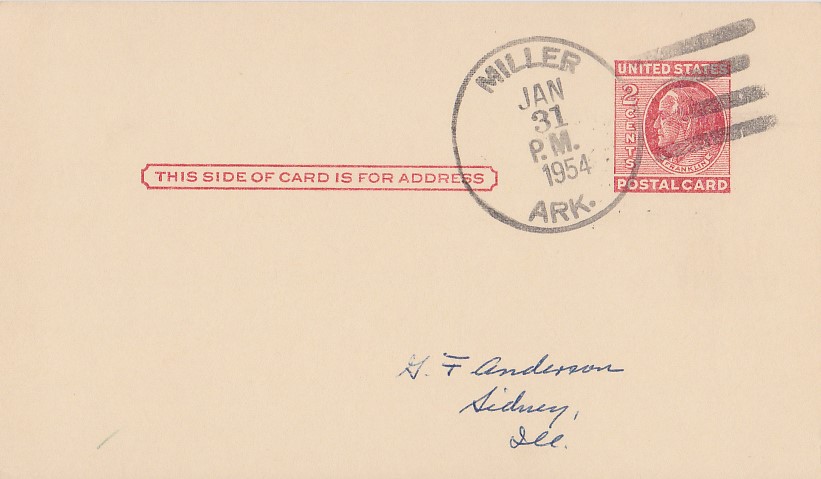 MILLER
JAN
31
P.M.
1954
ARK.
UNITED STATES
2 CENTS
FRANKLIN
POSTAL CARD
THIS SIDE OF CARD IS FOR ADDRESS
G. F Anderson
Sidney,
Ill.